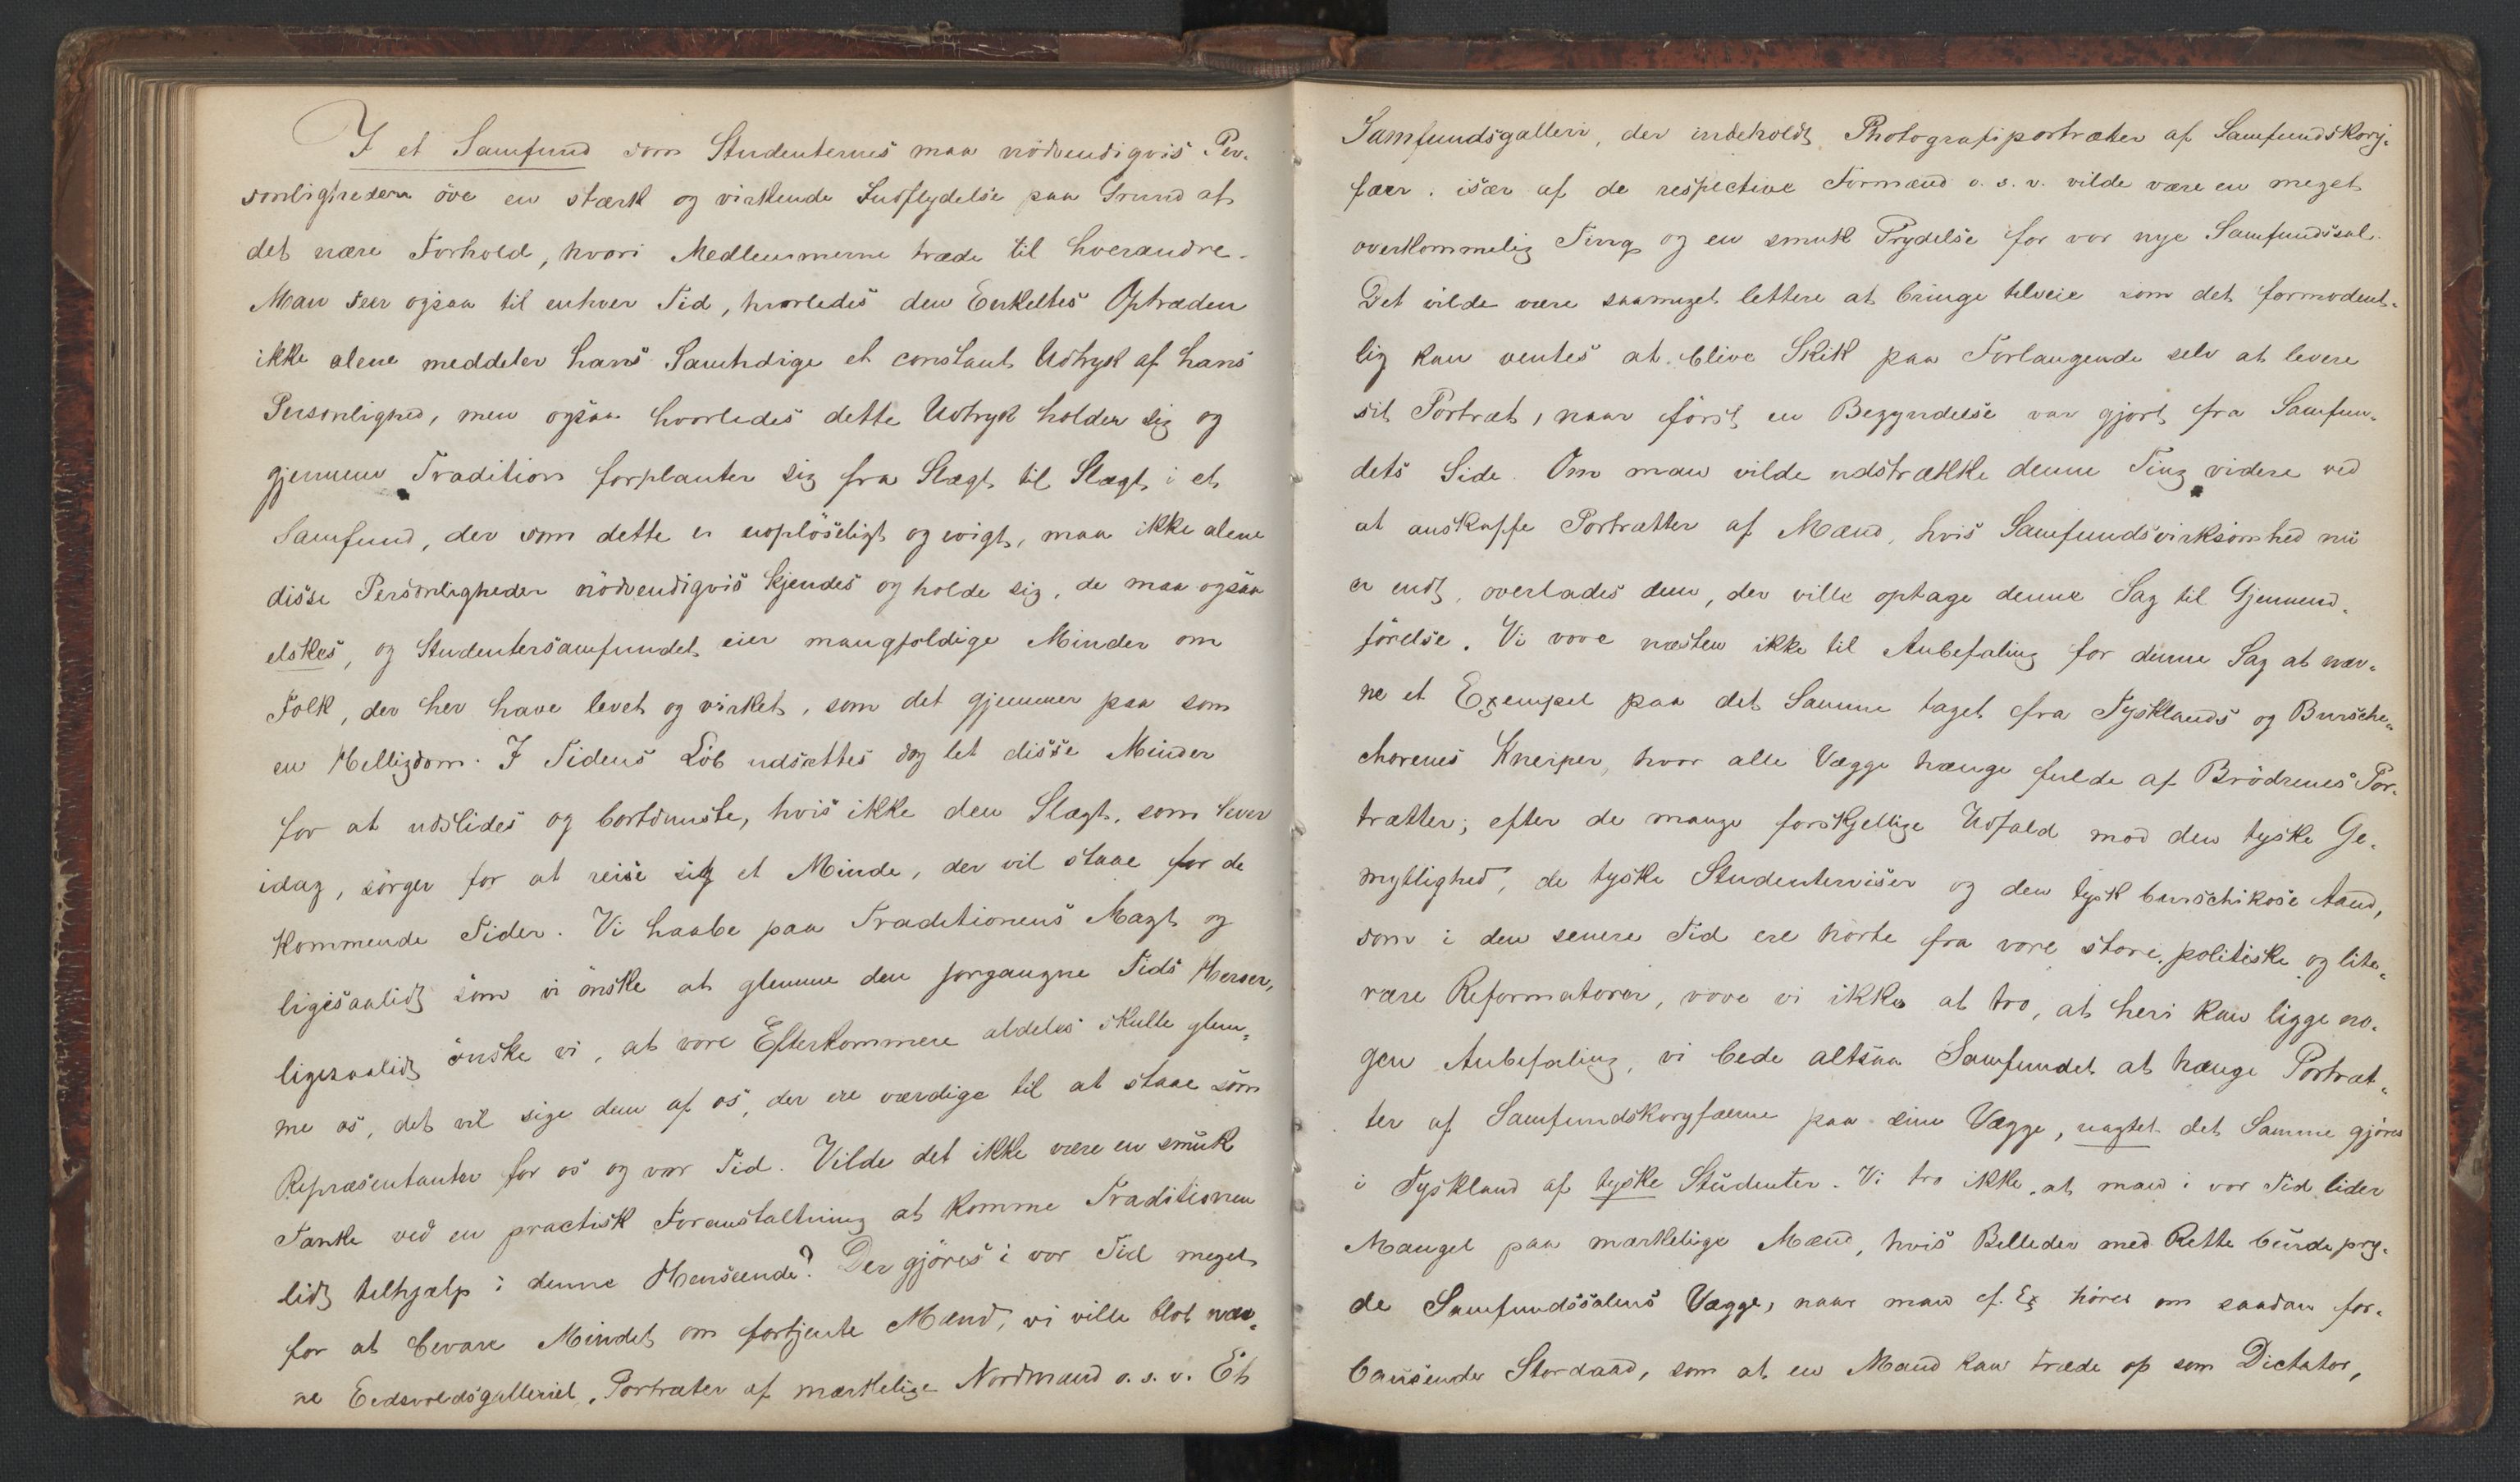 I et Samfund som Studenternes maa nödvendigvis Per-
sonligheden öve en stærk og virkende Indflydelse paa Grund af
det nære Forhold, hvori Medlemmerne træde til hverandre.
Man seer ogsaa til enhver Tid, hvorledes den Enkeltes Optræden
ikke alene meddeler hans Samtidige et constant Udtryk af hans
Personlighed, men ogsaa hvorledes dette Udtryk holder sig og
gjennem Tradition forplanter sig fra Slægt til Slægt i et
Samfund, der som dette er uoplöseligt og evigt, maa ikke alene
disse Personligheder nödvendigvis kjendes og holde sig, de maa ogsaa
elskes, og Studentersamfundet eier mangfoldige Minder om
Folk, der her have levet og virket, som det gjemmer paa som
en Helligdom. I Tidens Löb udsættes dog let disse Minder
for at udslides og bortdunste, hvis ikke den Slægt, som lever
idag, sörger for at reise sig et Minde, der vil staae for de
kommende Tider. Vi haabe paa Traditionens Magt og
ligesaalidt som vi önske at glemme den forgangne Tids Heroer,
ligesaalidt önske vi, at vore Efterkommere aldeles skulle glem-
me os, det vil sige dem af os, der ere værdige til at staae som
Repræsentanter for os og vor Tid. Vilde det ikke være en smuk
Tanke ved en practisk Foranstaltning at komme Traditionen
lidt tilhjælp i denne Henseende? Der gjöres i vor Tid meget
for at bevare Mindet om fortjente Mænd, vi ville blot næv-
ne Eidsvoldsgalleriet, Portræter af mærkelige Nordmænd o. s. v. Et
Samfundsgalleri, der indeholdt Photografiportræter af Samfundskory-
fæer, især af de respective Formænd o. s. v. vilde være en meget
overkommelig Ting og en smuk Prydelse for vor nye Samfundssal.
Det vilde være saameget lettere at bringe tilveie som det formodent-
lig kan ventes at blive Skik paa Forlangende selv at levere
sit Portræt, naar först en Begyndelse var gjort fra Samfun-
dets Side. Om man vilde udstrække denne Ting videre ved
at anskaffe Portrætter af Mænd, hvis Samfundsvirksomhed nu
er endt, overlades dem, der ville optage denne Sag til Gjennem-
förelse. Vi vove næsten ikke til Anbefaling for denne Sag at næv-
ne et Exempel paa det Samme taget fra Tysklands og Bursche-
chorenes Kneiper, hvor alle Vægge hænge fulde af Brödrenes Por-
trætter; efter de mange forskjellige Udfald mod den tyske Ge-
mytlighed, de tyske Studenterviser og den tysk burschikose Aand,
som i den senere Tid ere hörte fra vore store, politiske og lite-
rære Reformatorer, vove vi ikke at tro, at heri kan ligge no-
gen Anbefaling, vi bede altsaa Samfundet at hænge Portræt-
ter af Samfundskoryfæerne paa sine Vægge, uagtet det Samme gjöres
i Tyskland af tyske Studenter. Vi tro ikke, at man i vor Tid lider
Mangel paa mærkelige Mænd, hvis Billeder med Rette burde pry-
de Samfundssalens Vægge, naar man f. Ex hörer om saadan for-
bausende Stordaad, som at en Mand kan træde op som Dictator,